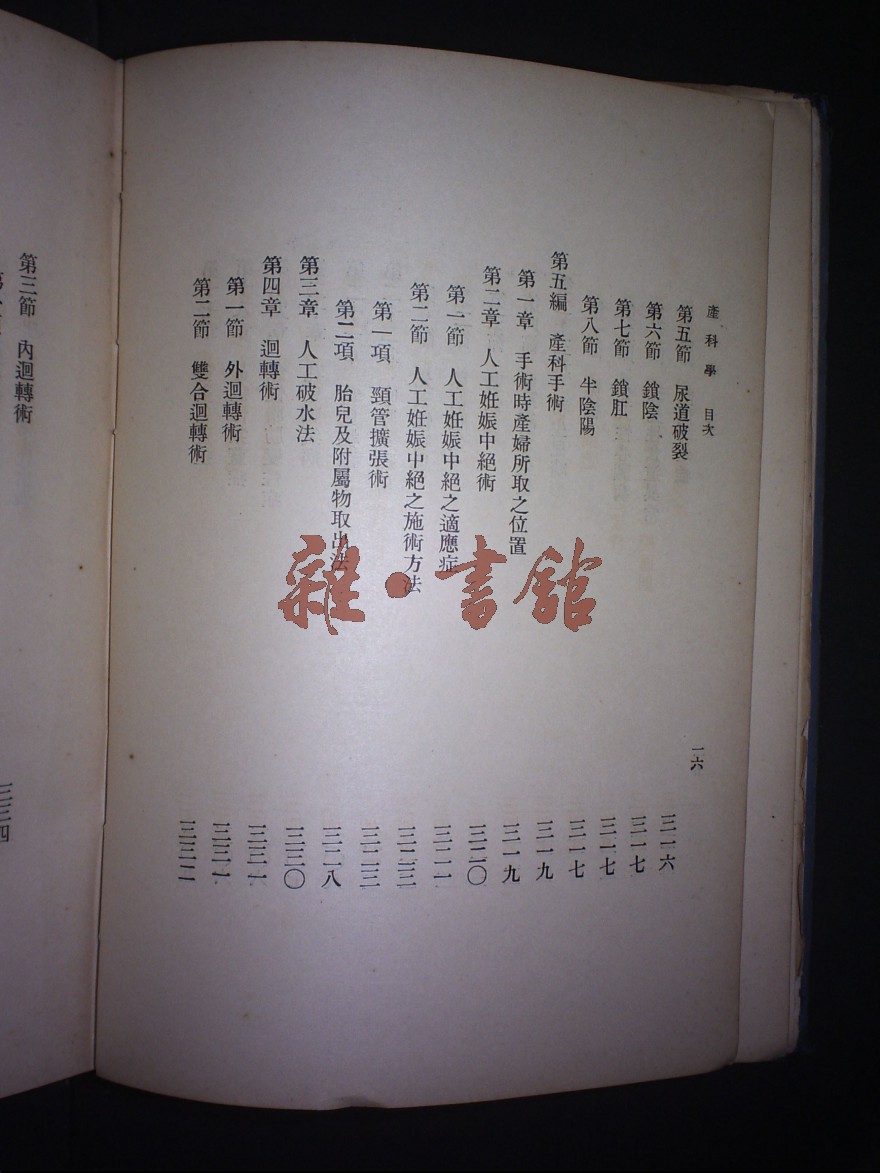 產科學 目次 一六
第五節 尿道破裂 三一六
第六節 鎖陰 三一七
第七節 鎖肛 三一七
第八節 半陰陽 三一七
第五編 產科手術 三一九
第一章 手術時產婦所取之位置 三一九
第二章 人工姙娠中絕術 三二〇
第一節 人工姙娠中絕之適應症 三二一
第二節 人工姙娠中絕之施術方法 三二三
第一項 頸管擴張術 三二三
第二項 胎兒及附屬物取出法 三二八
第三章 人工破水法 三三〇
第四章 迴轉術 三三一
第一節 外迴轉術 三三一
第二節 雙合迴轉術 三三二
第三節 內迴轉術 三三四
雜·書館